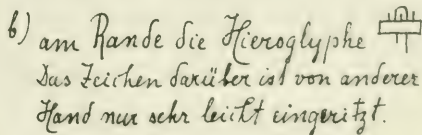 b) am Rande die Hieroglyphe
Das Zeichen darüber ist von anderer
Hand nur sehr leicht eingeritzt.